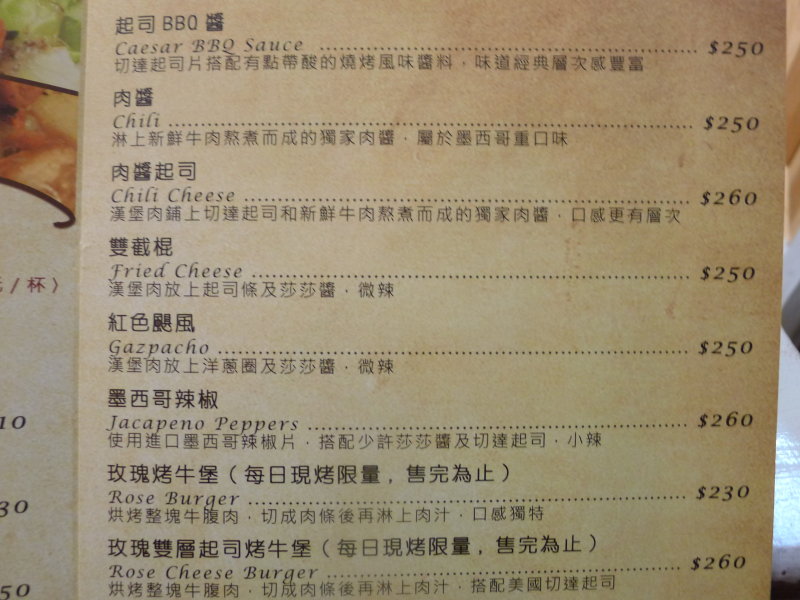 起司BBQ醬
Caesar BBQ Sauce ........ $250
切達起司片搭配有點帶酸的燒烤風味醬料，味道經典層次感豐富
肉醬
Chili ........ $250
淋上新鮮牛肉熬煮而成的獨家肉醬．屬於墨西哥重口味
肉醬起司
Chili Cheese ........ $260
漢堡肉鋪上切達起司和新鮮牛肉熬煮而成的獨家肉醬．口感更有層次
雙截棍
Fried Cheese ........ $250
漢堡肉放上起司條及莎莎醬．微辣
紅色颶風
Gazpacho ........ $250
漢堡肉放上洋蔥圈及莎莎醬．微辣
墨西哥辣椒
Jacapeno Peppers ........ $260
使用進口墨西哥辣椒片．搭配少許莎莎醬及切達起司．小辣
玫瑰烤牛堡（每日現烤限量，售完為止）
Rose Burger ........ $230
烘烤整塊牛腹肉．切成肉條後再淋上肉汁．口感獨特
玫瑰雙層起司烤牛堡（每日現烤限量，售完為止）
Rose Cheese Burger ........ $260
烘烤整塊牛腹肉．切成肉條後再淋上肉汁．搭配美國切達起司
/杯）
10
30
50